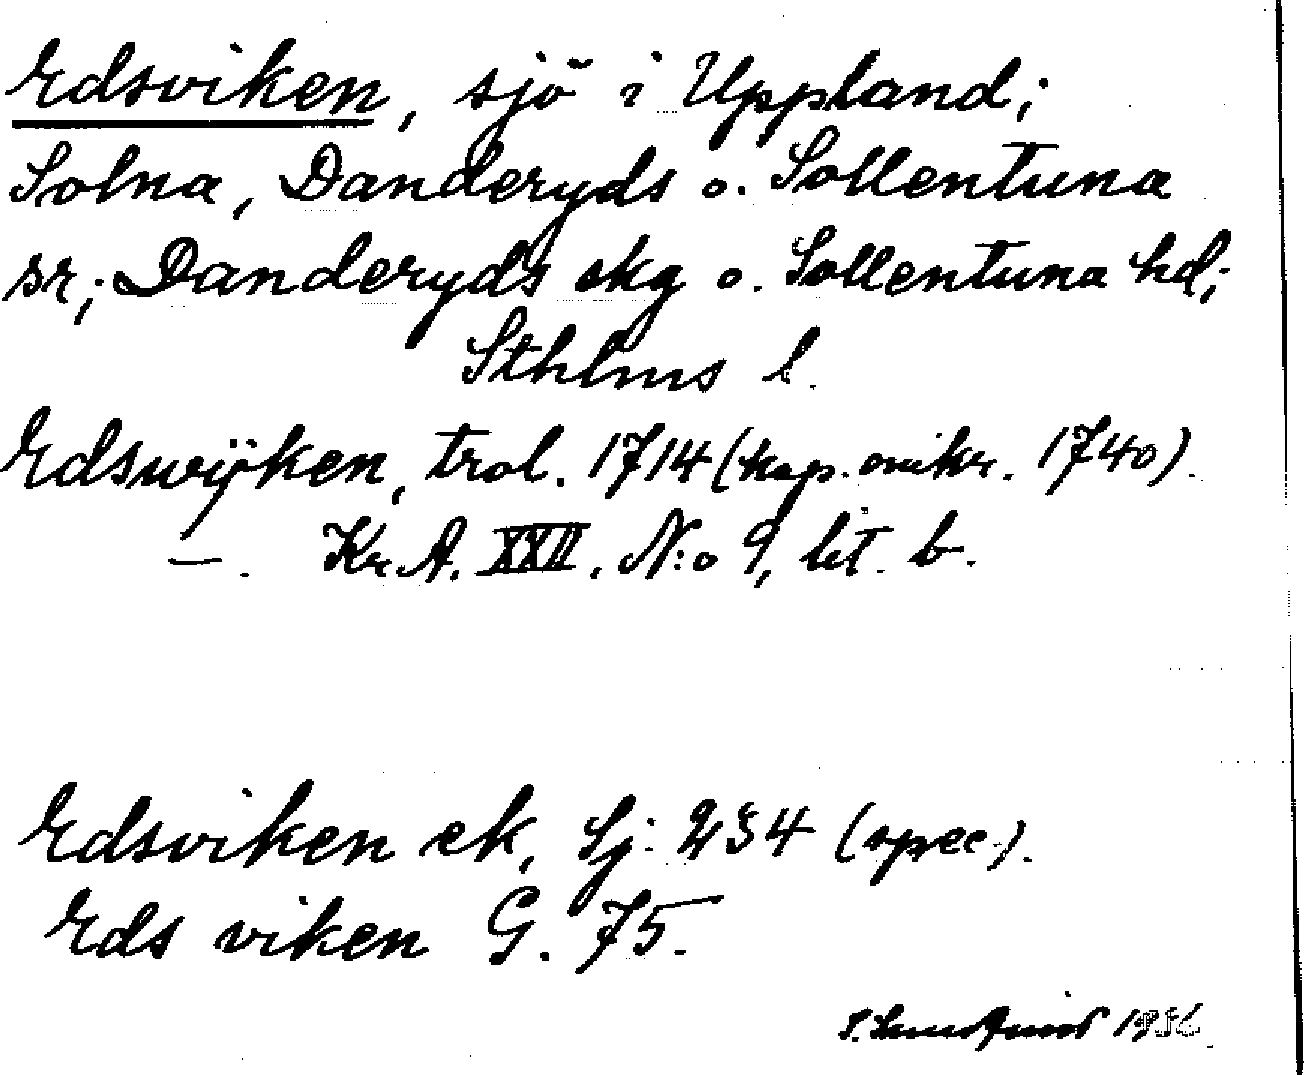 Edsviken, sjö i Uppland;
Solna, Danderyds o. Sollentuna
sr; Danderyds skg o. Sollentuna hd;
Sthlms l.
Edswÿken, trol. 1714 (kop. omkr. 1740).
—. Kr. A. XXII. N:o 9, lit. b.
Edsviken ek, Sj: 234 (spec.).
Eds viken G. 75.